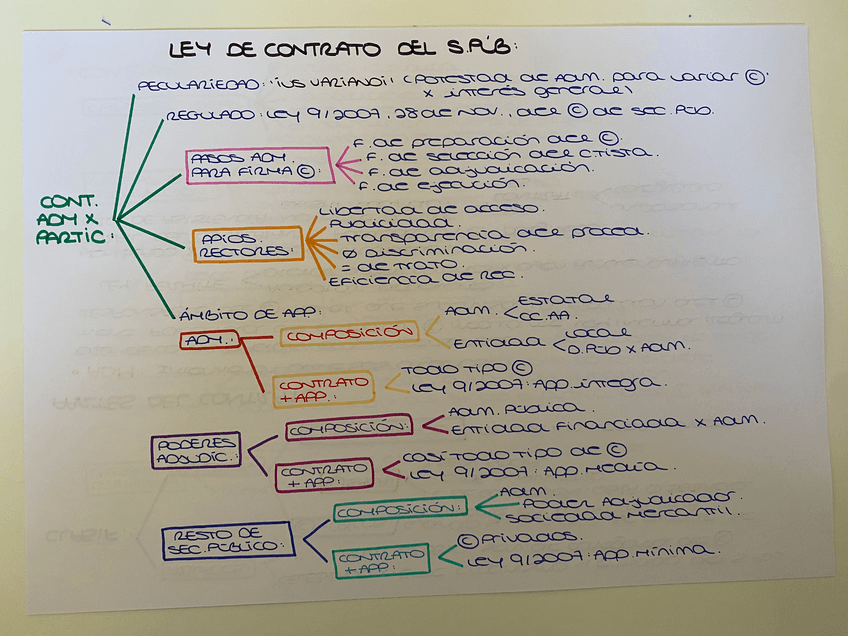 LEY DE CONTRATO DEL S.PÚB:
PECULARIEDAD: "IUS VARIANDI" (POTESTAD de ADM. PARA VARIAR ©
x interés general)
REGULADO: LEY 9/2007, 28 de NOV., del © de SEC. PÚB.
PASOS ADM.
PARA FIRMA ©:
F. de preparación del ©.
F. de selección del CTISTA.
F. de adjudicación.
F. de ejecución.
CONT.
ADM X
PARTIC:
PPIOS.
RECTORES:
Libertad de acceso.
Publicidad.
Transparencia del proced.
Ø Discriminación.
= de trato.
Eficiencia de Rec.
ÁMBITO DE APP:
ADM.:
COMPOSICIÓN
ADM. < ESTATAL
CC.AA.
ENTIDAD < LOCAL
D.PÚB X ADM.
CONTRATO
+ APP.:
TODO TIPO ©
LEY 9/2007: APP. íntegra.
PODERES
ADJUDIC.:
COMPOSICIÓN:
ADM. PÚBLICA.
ENTIDAD FINANCIADA X ADM.
CONTRATO
+ APP:
CASI TODO TIPO DE ©
LEY 9/2007: APP. MEDIA.
RESTO DE
SEC. PÚBLICO:
COMPOSICIÓN:
ADM.
PODER ADJUDICADOR.
SOCIEDAD MERCANTIL.
CONTRATO
+ APP:
© PRIVADOS.
LEY 9/2007: APP. MÍNIMA.